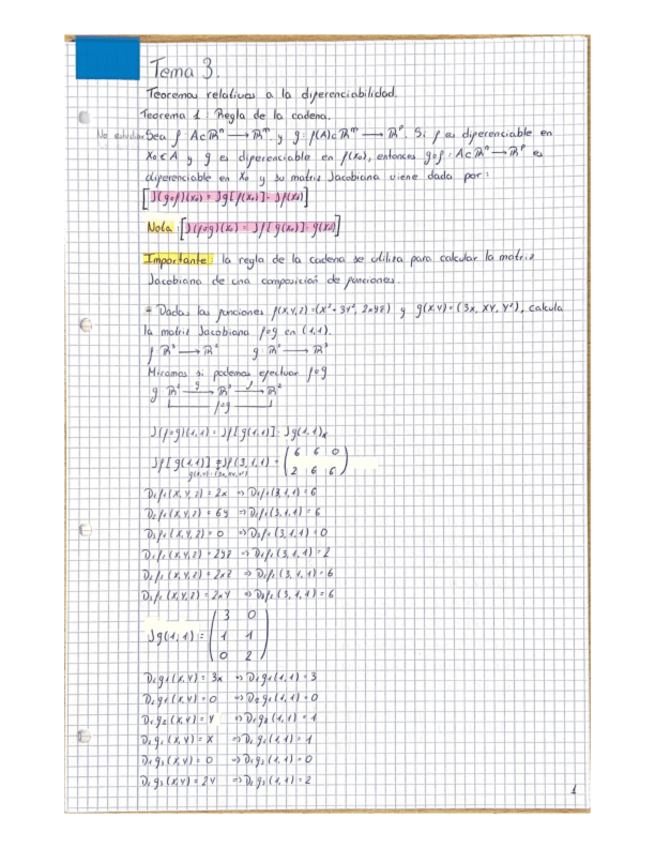 Tema 3.
Teoremas relativos a la diferenciabilidad.
Teorema 1: Regla de la cadena.
No estudiar Sea f: A⊂ℝⁿ → ℝᵐ y g: f(A)⊂ℝᵐ → ℝᵖ. Si f es diferenciable en
x₀∈A y g es diferenciable en f(x₀), entonces g∘f: A⊂ℝⁿ → ℝᵖ es
diferenciable en x₀ y su matriz Jacobiana viene dada por:
[J(g∘f)(x₀) = Jg[f(x₀)]· Jf(x₀)]
Nota: [J(f∘g)(x₀) = Jf[g(x₀)]· g(x₀)]
Importante: la regla de la cadena se utiliza para calcular la matriz
Jacobiana de una composición de funciones.
= Dadas las funciones f(x,y,z)=(x²+3y², 2xyz) y g(x,y)=(3x, xy, y²), calcula
la matriz Jacobiana f∘g en (1,1).
f: ℝ³ → ℝ² g: ℝ² → ℝ³
Miramos si podemos efectuar f∘g
g ℝ² →g ℝ³ →f ℝ²
f∘g
J(f∘g)(1,1) = Jf[g(1,1)]· Jg(1,1)
Jf[g(1,1)] = Jf(3,1,1) = (6 6 0
2 6 6)
g(x,y)=(3x,xy,y²)
D₁f₁(x,y,z) = 2x ⇒ D₁f₁(3,1,1)=6
D₂f₁(x,y,z) = 6y ⇒ D₂f₁(3,1,1)=6
D₃f₁(x,y,z) = 0 ⇒ D₃f₁(3,1,1)=0
D₁f₂(x,y,z) = 2yz ⇒ D₁f₂(3,1,1)=2
D₂f₂(x,y,z) = 2xz ⇒ D₂f₂(3,1,1)=6
D₃f₂(x,y,z) = 2xy ⇒ D₃f₂(3,1,1)=6
Jg(1,1) = (3 0
1 1
0 2)
D₁g₁(x,y) = 3x ⇒ D₁g₁(1,1)=3
D₂g₁(x,y) = 0 ⇒ D₂g₁(1,1)=0
D₁g₂(x,y) = y ⇒ D₁g₂(1,1)=1
D₂g₂(x,y) = x ⇒ D₂g₂(1,1)=1
D₁g₃(x,y) = 0 ⇒ D₁g₃(1,1)=0
D₂g₃(x,y) = 2y ⇒ D₂g₃(1,1)=2
1